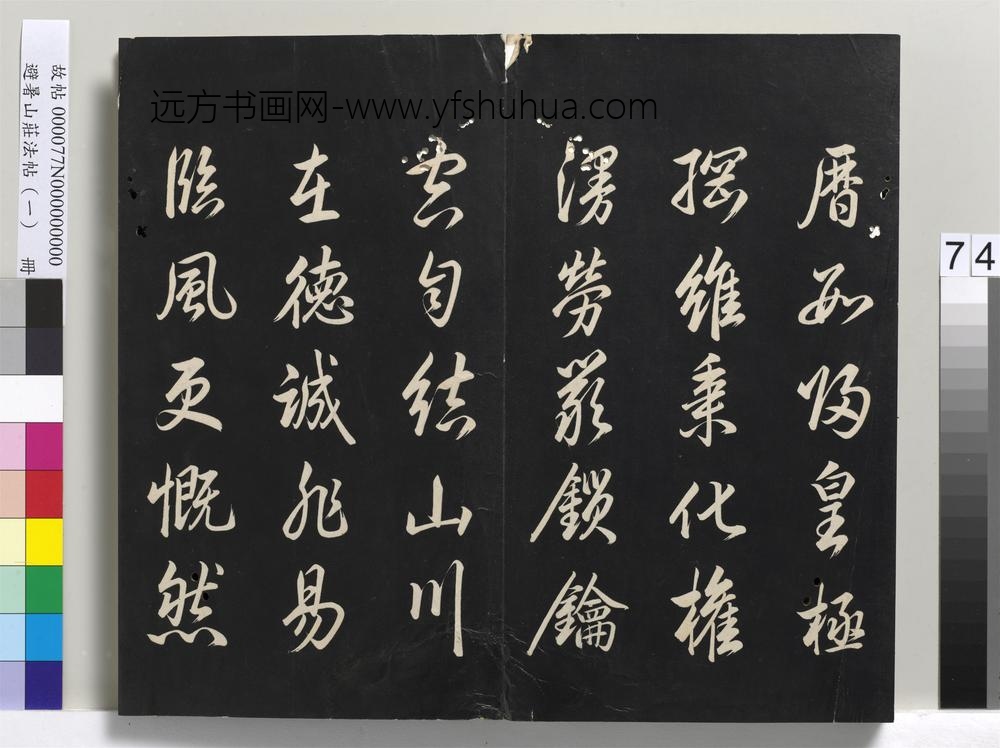 远方书画网-www.yfshuhua.com
故帖 000077N000000000
避暑山莊法帖（一） 冊
74
曆數歸皇極
綱維秉化權
漫勞嚴鎖鑰
空自結山川
在德誠非易
臨風更慨然